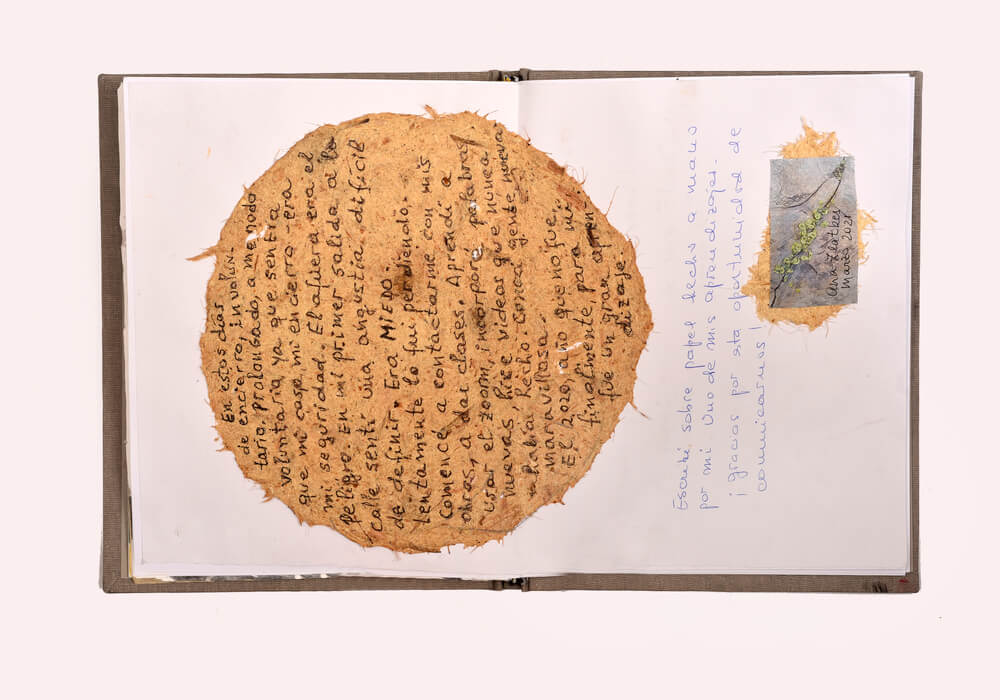 En estos días
de encierro, involun-
tario, prolongado, a menudo
voluntaria ya que sentía
que mi casa, mi encierro era
mi seguridad. El afuera era el
peligro. En mi primer salida a la
calle sentí una angustia difícil
de definir. Era MIEDO.
Lentamente lo fui perdiendo.
Comencé a contactarme con mis
obras, a dar clases. Aprendí a
usar el zoom, incorporé palabras
nuevas, hice videos que nunca
había hecho conocí gente nueva
maravillosa.
El 2020, año que no fue,
finalmente, para mí
fue un gran apren
dizaje
Escribí sobre papel hecho a mano
por mi. Uno de mis aprendizajes.
¡ gracias por esta oportunidad de
comunicarnos !
Ana Zlatkes
marzo 2021